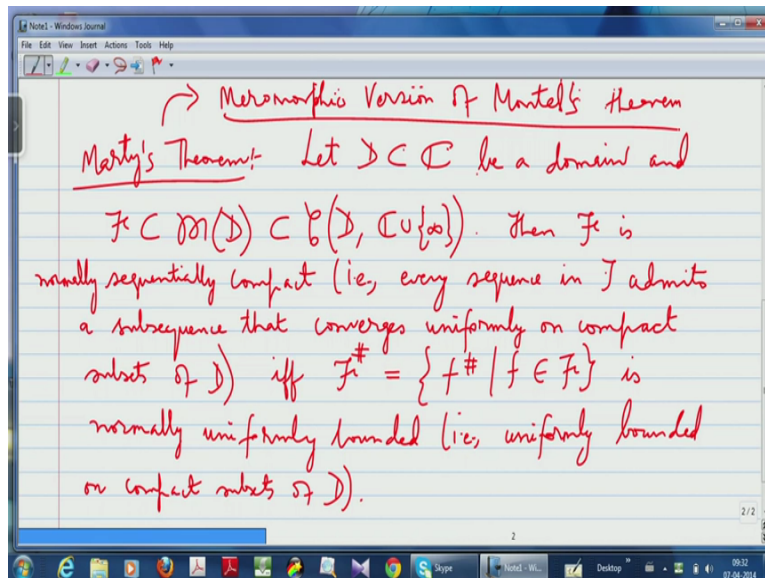 Note1 - Windows Journal
File Edit View Insert Actions Tools Help
Meromorphic Version of Montel's theorem
Marty's Theorem:- Let D ⊂ ℂ be a domain and
ℱ ⊂ 𝓜(D) ⊂ 𝒞(D, ℂ∪{∞}). Then ℱ is
normally sequentially compact (i.e., every sequence in ℱ admits
a subsequence that converges uniformly on compact
subsets of D) iff ℱ^# = {f^# | f ∈ ℱ} is
normally uniformly bounded (i.e., uniformly bounded
on compact subsets of D).
2/2
2
Skype
Note1 - Wi...
Desktop
09:32
07-04-2014